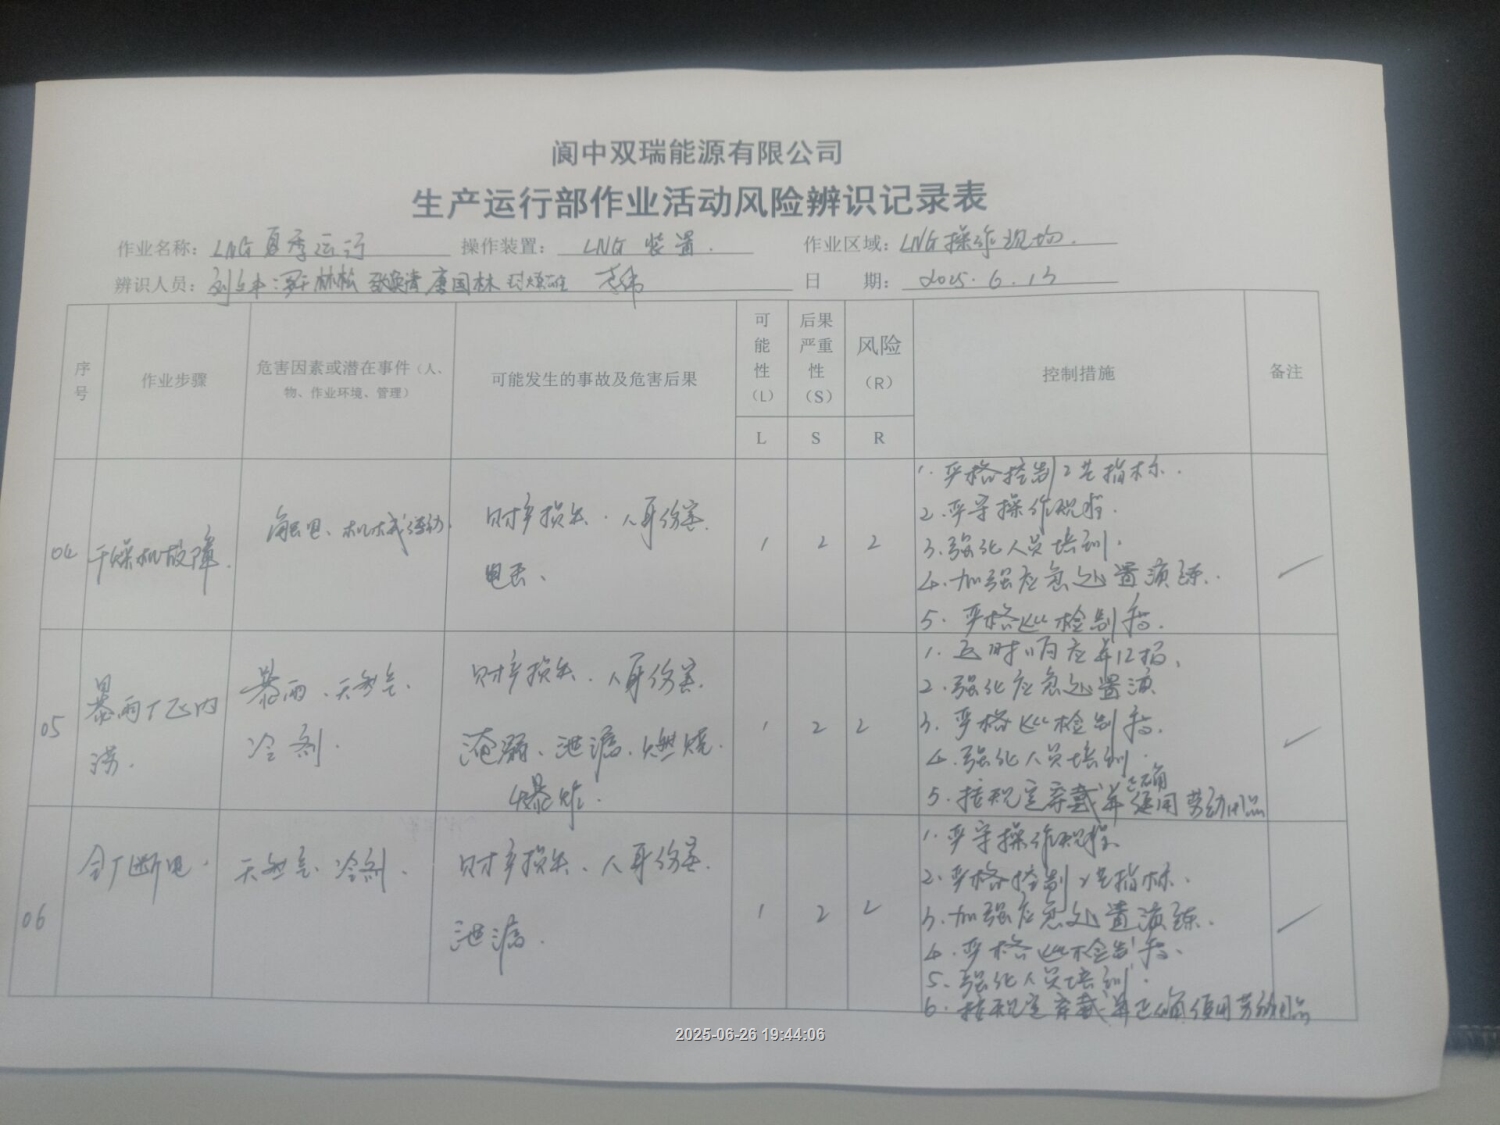 阆中双瑞能源有限公司
生产运行部作业活动风险辨识记录表
作业名称：LNG夏季运行 操作装置：LNG 装置. 作业区域：LNG操作现场.
辨识人员： 唐国林 日 期：2025.6.13
序号 作业步骤 危害因素或潜在事件（人、物、作业环境、管理） 可能发生的事故及危害后果 可能性（L） 后果严重性（S） 风险（R） 控制措施 备注
L S R
04 干燥机故障. 触电、机械传动. 财产损失、人身伤害. 电击、 1 2 2
1. 严格控制工艺指标.
2. 严守操作规程.
3. 强化人员培训.
4. 加强应急处置演练.
5. 严格巡检制度.
05 暴雨厂区内涝. 暴雨、天然气. 冷剂. 财产损失、人身伤害. 淹溺、泄漏、燃烧. 爆炸. 1 2 2
1. 及时
2. 强化应急处置演
3. 严格巡检制度.
4. 强化人员培训.
5. 按规定穿戴并正确使用劳动用品
06 全厂断电. 天然气、冷剂. 财产损失、人身伤害. 泄漏. 1 2 2
1. 严守操作规程.
2. 严格控制工艺指标.
3. 加强应急处置演练.
4. 严格巡检制度.
5. 强化人员培训.
6. 按规定穿戴并正确使用劳动用品
2025-06-26 19:44:06